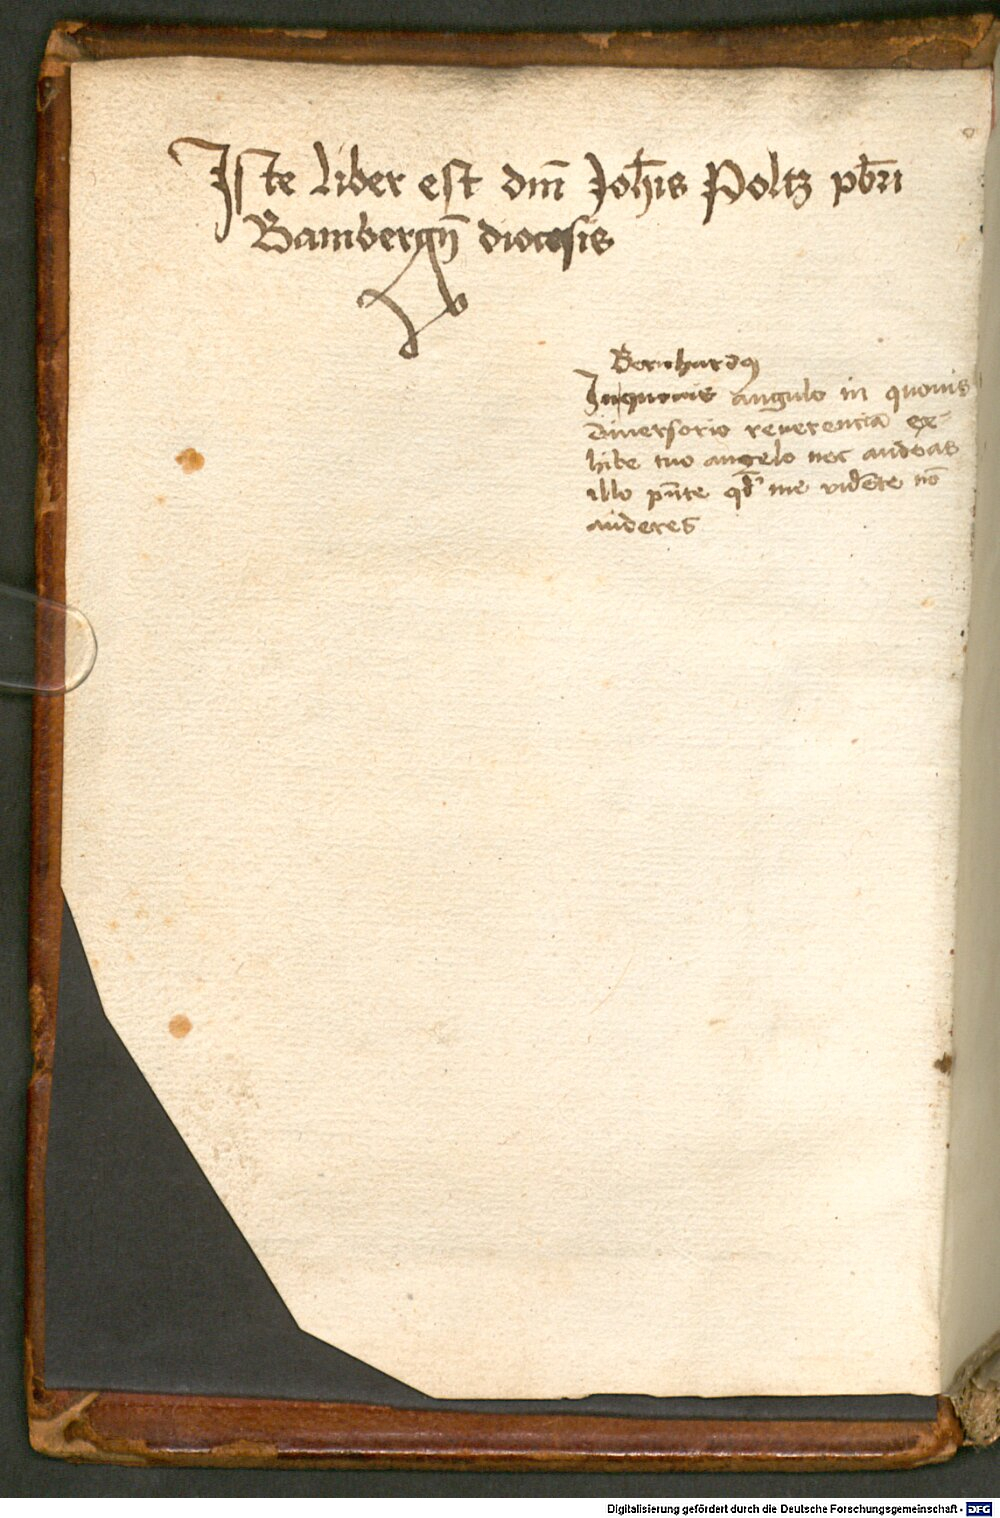 Iste liber est dm̄ Joh̄is Poltz pb̄ri
Bambergn̄ diocesis
Bernhardꝯ
In quouis angulo in quouis
diuersorio reuerentiā ex-
hibe tuo angelo nec audeas
illo pn̄te qd̄ me vidēte nō
auderes
Digitalisierung gefördert durch die Deutsche Forschungsgemeinschaft - DFG